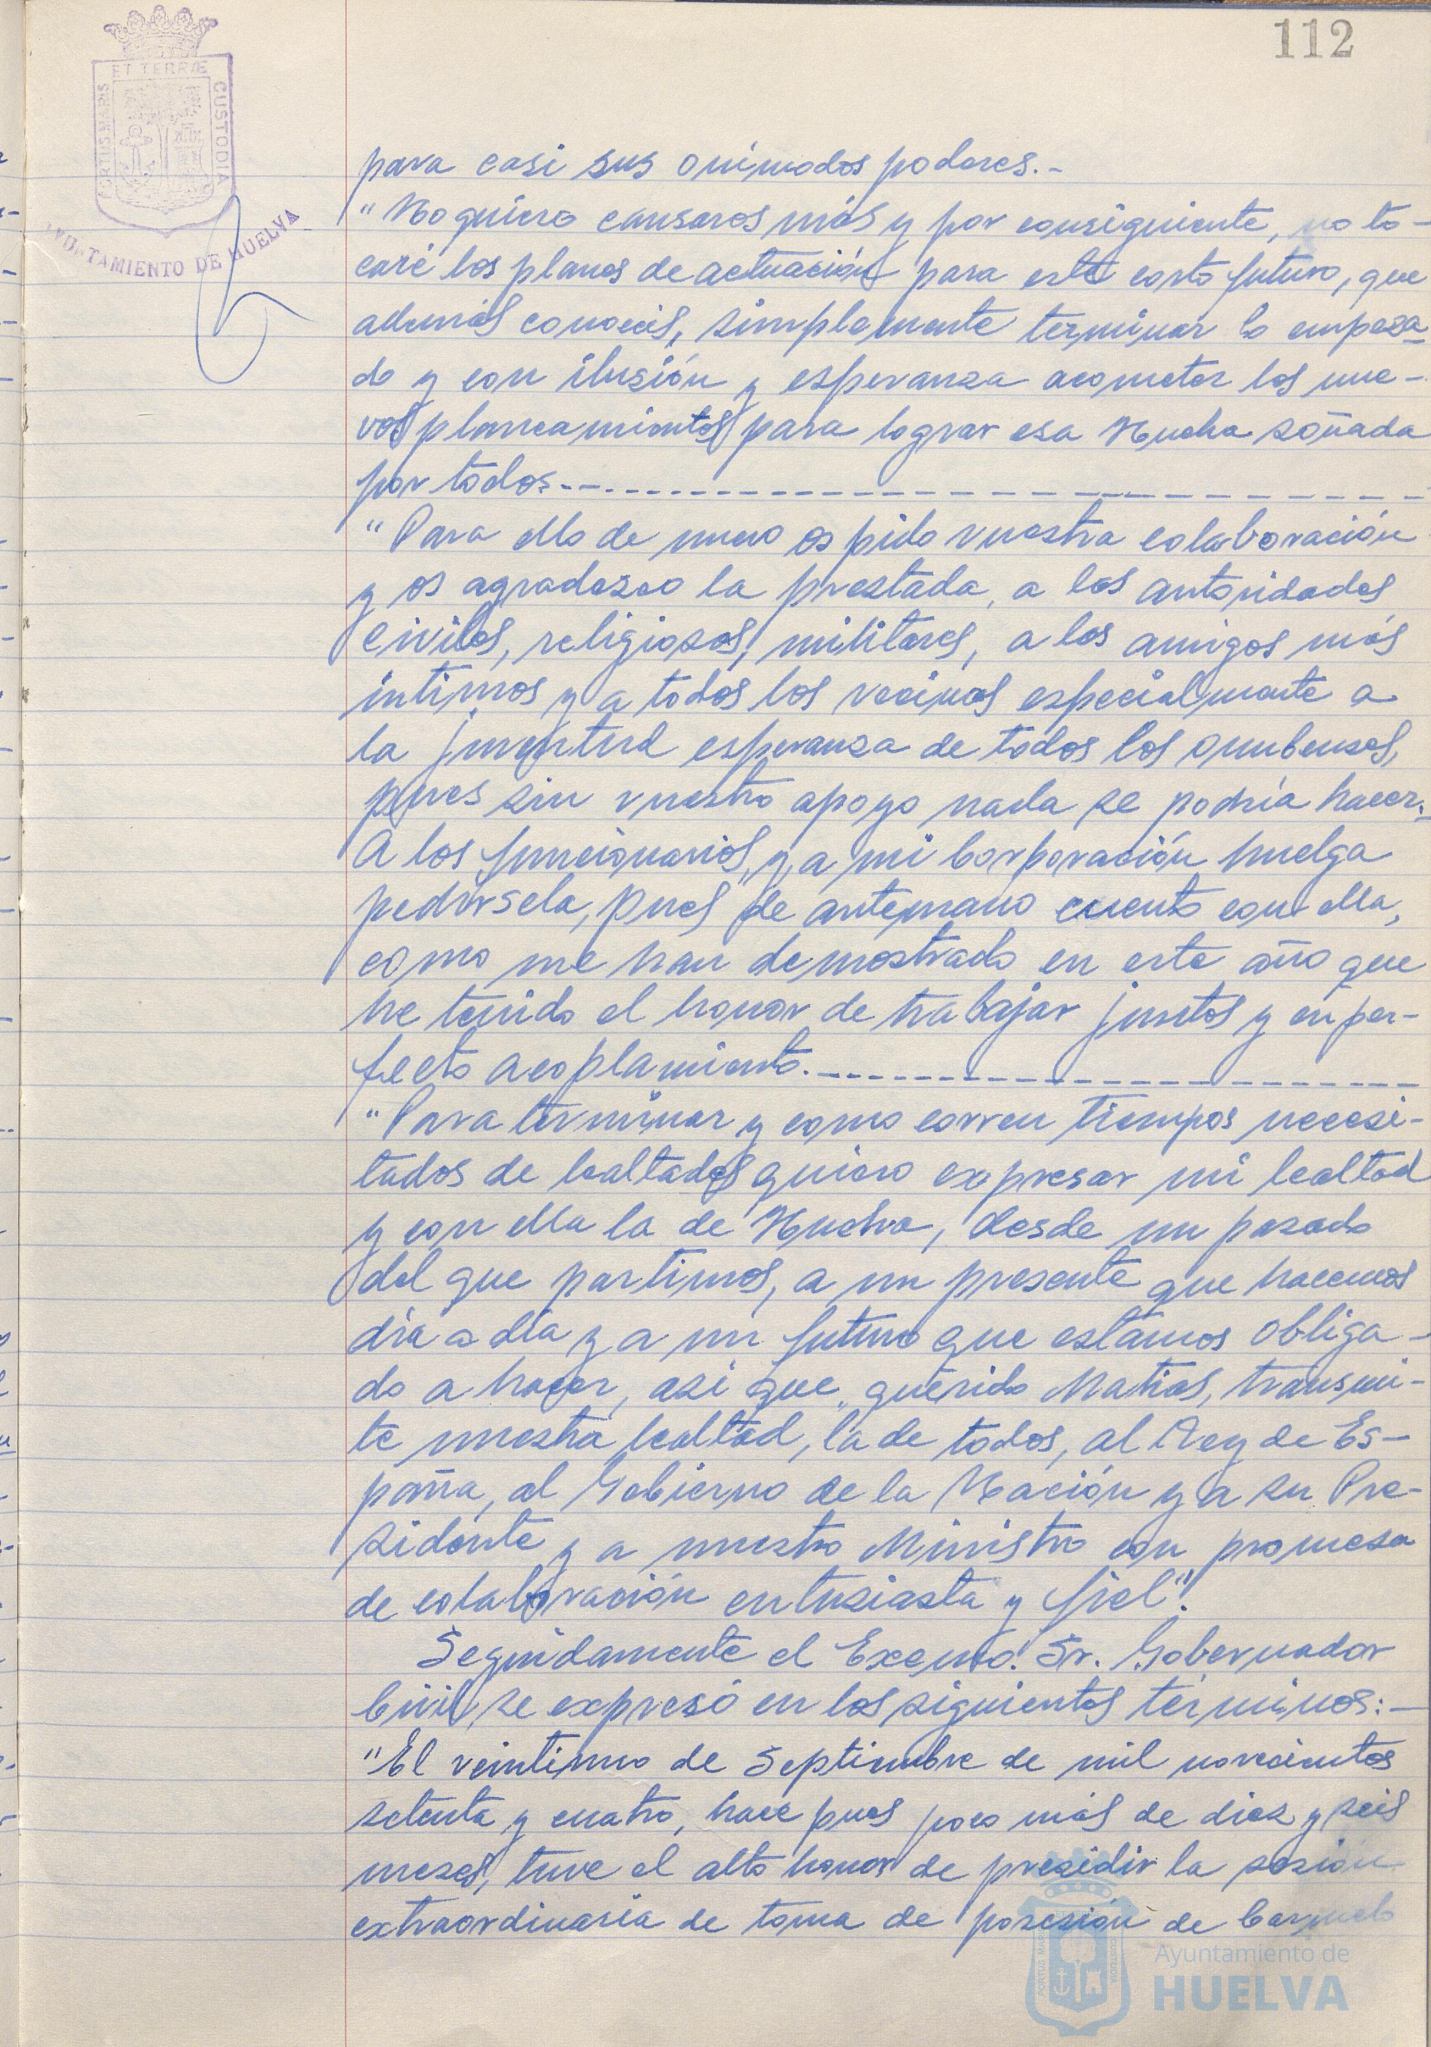 112
ET TERRÆ
PORTUS MARIS
CUSTODIA
AYUNTAMIENTO DE HUELVA
para casi sus onimodos poderes.-
"No quiero cansaros más y por consiguiente, no to-
caré los planes de actuación para este corto futuro, que
además conoceis, simplemente terminar lo empeza-
do y con ilusión y esperanza acometer los nue-
vos planeamientos para lograr esa Huelva soñada
por todos.-
"Para ello de nuevo os pido vuestra colaboración
y os agradezco la prestada, a las autoridades
civiles, religiosas, militares, a los amigos más
intimos y a todos los vecinos especialmente a
la juventud esperanza de todos los onubenses,
pues sin vuestro apoyo nada se podría hacer.-
A los funcionarios, y a mi Corporación huelga
pedirsela, pues de antemano cuento con ella,
como me han demostrado en este año que
he tenido el honor de trabajar juntos y en per-
fecto acoplamiento.-
"Para terminar y como corren tiempos necesi-
tados de lealtades quiero expresar mi lealtad
y con ella la de Huelva, desde un pasado
del que partimos, a un presente que hacemos
día a día y a un futuro que estamos obliga-
do a hacer, asi que, querido Matias, transmi-
te nuestra lealtad, la de todos, al Rey de Es-
paña, al Gobierno de la Nación y a su Pre-
sidente y a nuestro Ministro con promesa
de colaboración entusiasta y fiel".
Seguidamente el Excmo. Sr. Gobernador
Civil, se expresó en los siguientes términos:-
"El veintiuno de Septiembre de mil novecientos
setenta y cuatro, hace pues poco más de diez y seis
meses, tuve el alto honor de presidir la sesión
extraordinaria de toma de posesión de Carmelo
Ayuntamiento de
HUELVA